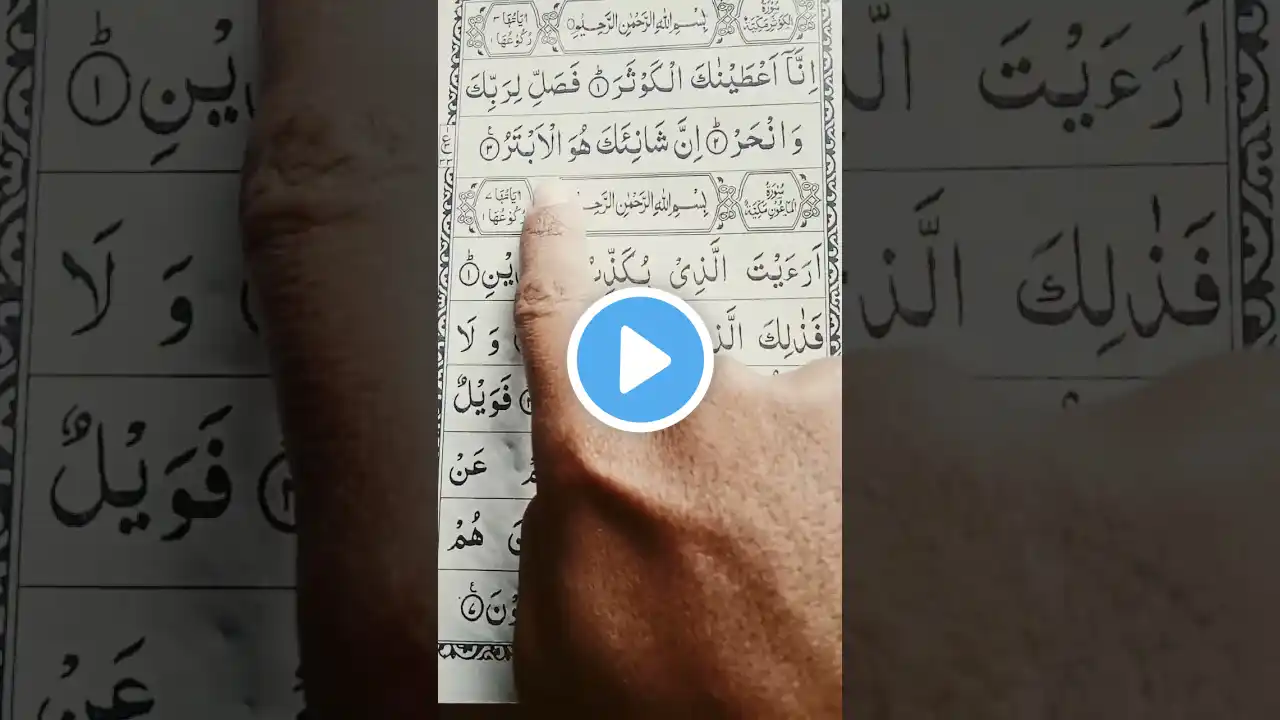 سُوْرَةُ الْكَوْثَرِ مَكِّيَّةٌ بِسْمِ اللّٰهِ الرَّحْمٰنِ الرَّحِيْمِ اٰيَاتُهَا ٣ رُكُوْعُهَا ١
اِنَّاۤ اَعْطَيْنٰكَ الْكَوْثَرَ ؕ﴿۱﴾ فَصَلِّ لِرَبِّكَ
وَ انْحَرْ ؕ﴿۲﴾ اِنَّ شَانِئَكَ هُوَ الْاَبْتَرُ ﴿۳﴾
سُوْرَةُ الْمَاعُوْنِ مَكِّيَّةٌ بِسْمِ اللّٰهِ الرَّحْمٰنِ اٰيَاتُهَا ٧ رُكُوْعُهَا ١
اَرَءَيْتَ الَّذِيْ ؕ﴿۱﴾
فَذٰلِكَ وَ لَا
فَوَيْلٌ
عَنْ
هُمْ